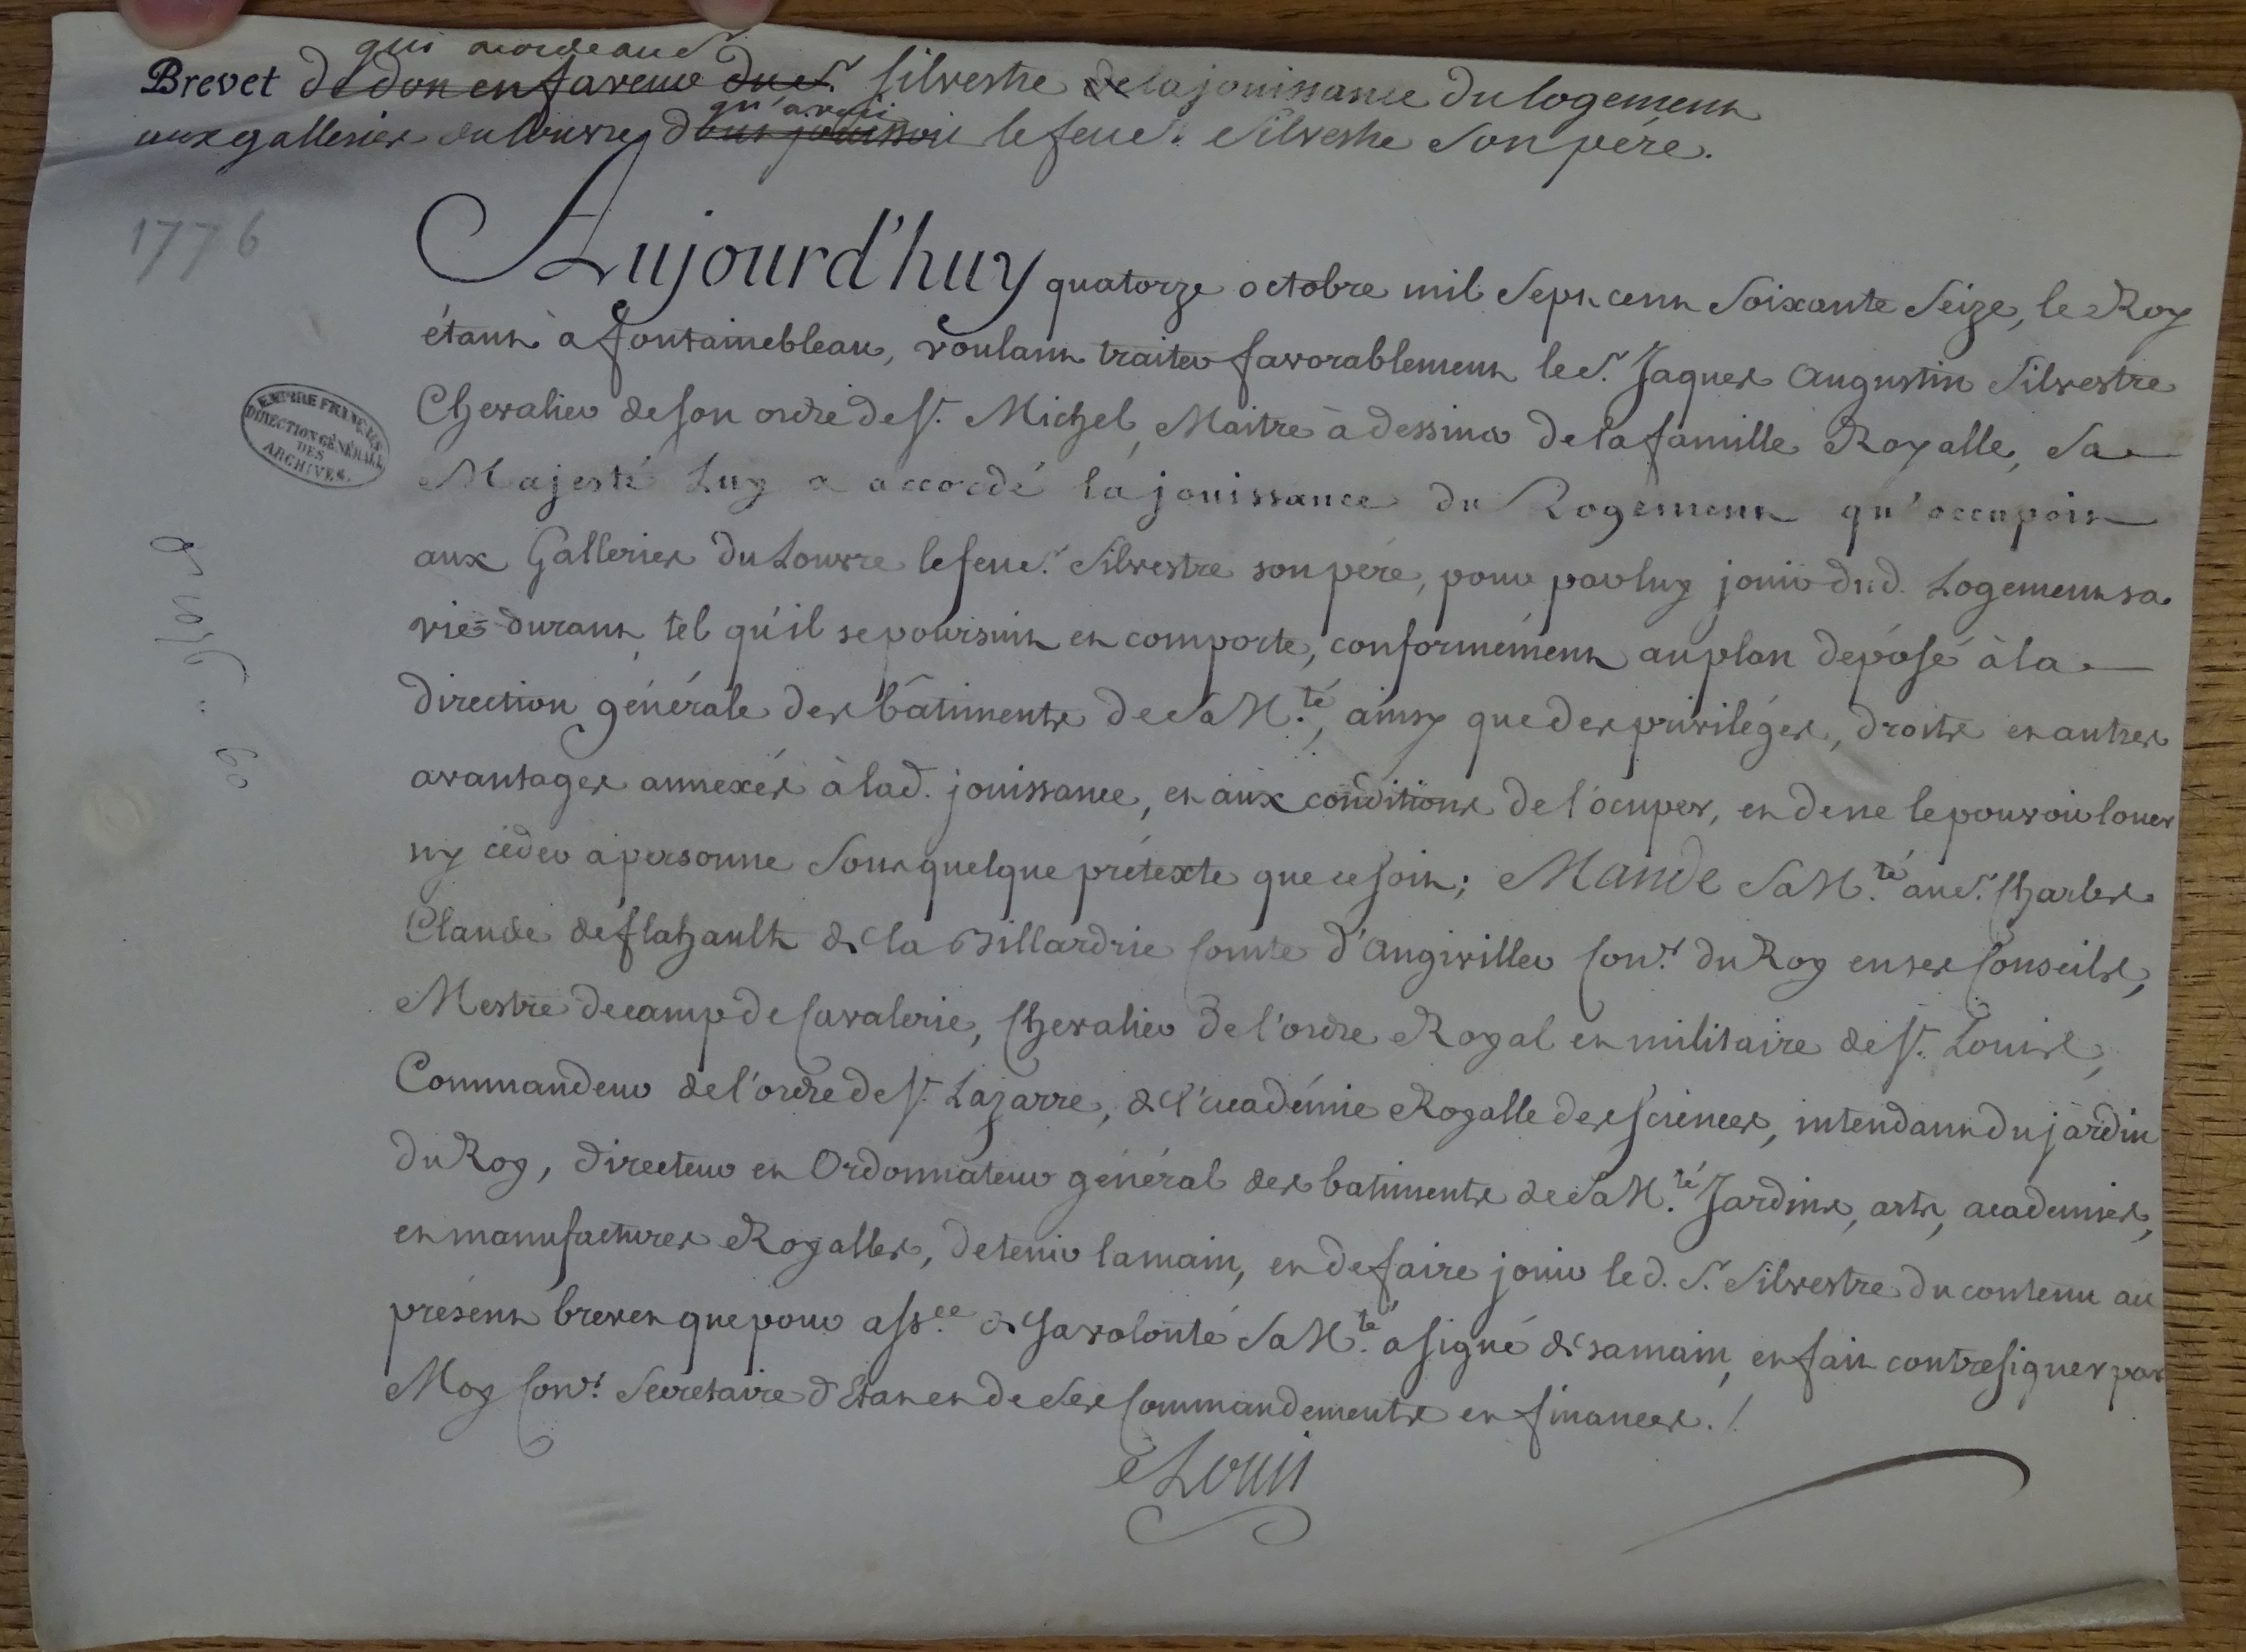 qui accorde au S.
Brevet de don en faveur du S. Silvestre de la jouissance du logement
qu'avoit
aux galleries du Louvre dont jouissoit le feu S. Silvestre son père.
1776
Aujourd'huy quatorze octobre mil sept cent soixante seize, le Roy
étant à fontainebleau, voulant traiter favorablement le S. Jaques Augustin Silvestre
Chevalier de son ordre de St. Michel, Maitre à dessiner de la famille Royalle, Sa
Majesté Luy a accordé la jouissance du Logement qu'occupoit
aux Galleries du Louvre le feu S. Silvestre son père, pour par luy jouir dud. Logement sa
vie durant, tel qu'il se poursuit et comporte, conformément au plan déposé à la
direction générale des bâtiments de Sa M.té, ainsy que des priviléges, droits et autres
avantages annexés à lad. jouissance, et aux conditions de l'ocuper, et de ne le pouvoir louer
ny céder a personne sous quelque prétexte que ce soit; Mande Sa M.té au S. Charles
Claude de flahault de la Billardrie Comte d'Angiviller Con.er du Roy en ses Conseils,
Mestre de camp de Cavalerie, Chevalier de l'ordre Royal et militaire de St. Louis,
Commandeur de l'ordre de St. Lazarre, de l'académie Royalle des Sciences, intendant du jardin
du Roy, directeur et Ordonnateur général des batiments de Sa M.té Jardins, arts, academies,
et manufactures Royalles, de tenir la main, et de faire jouir led. S. Silvestre du contenu au
présent brevet que pour ass.ce de sa volonté Sa M.té a signé de sa main, et fait contresigner par
Moy Con.er Secretaire d'Etat et de Ses Commandements et finances. /
Louis
EMPIRE FRANÇAIS
DIRECTION GÉNÉRALE
DES
ARCHIVES.